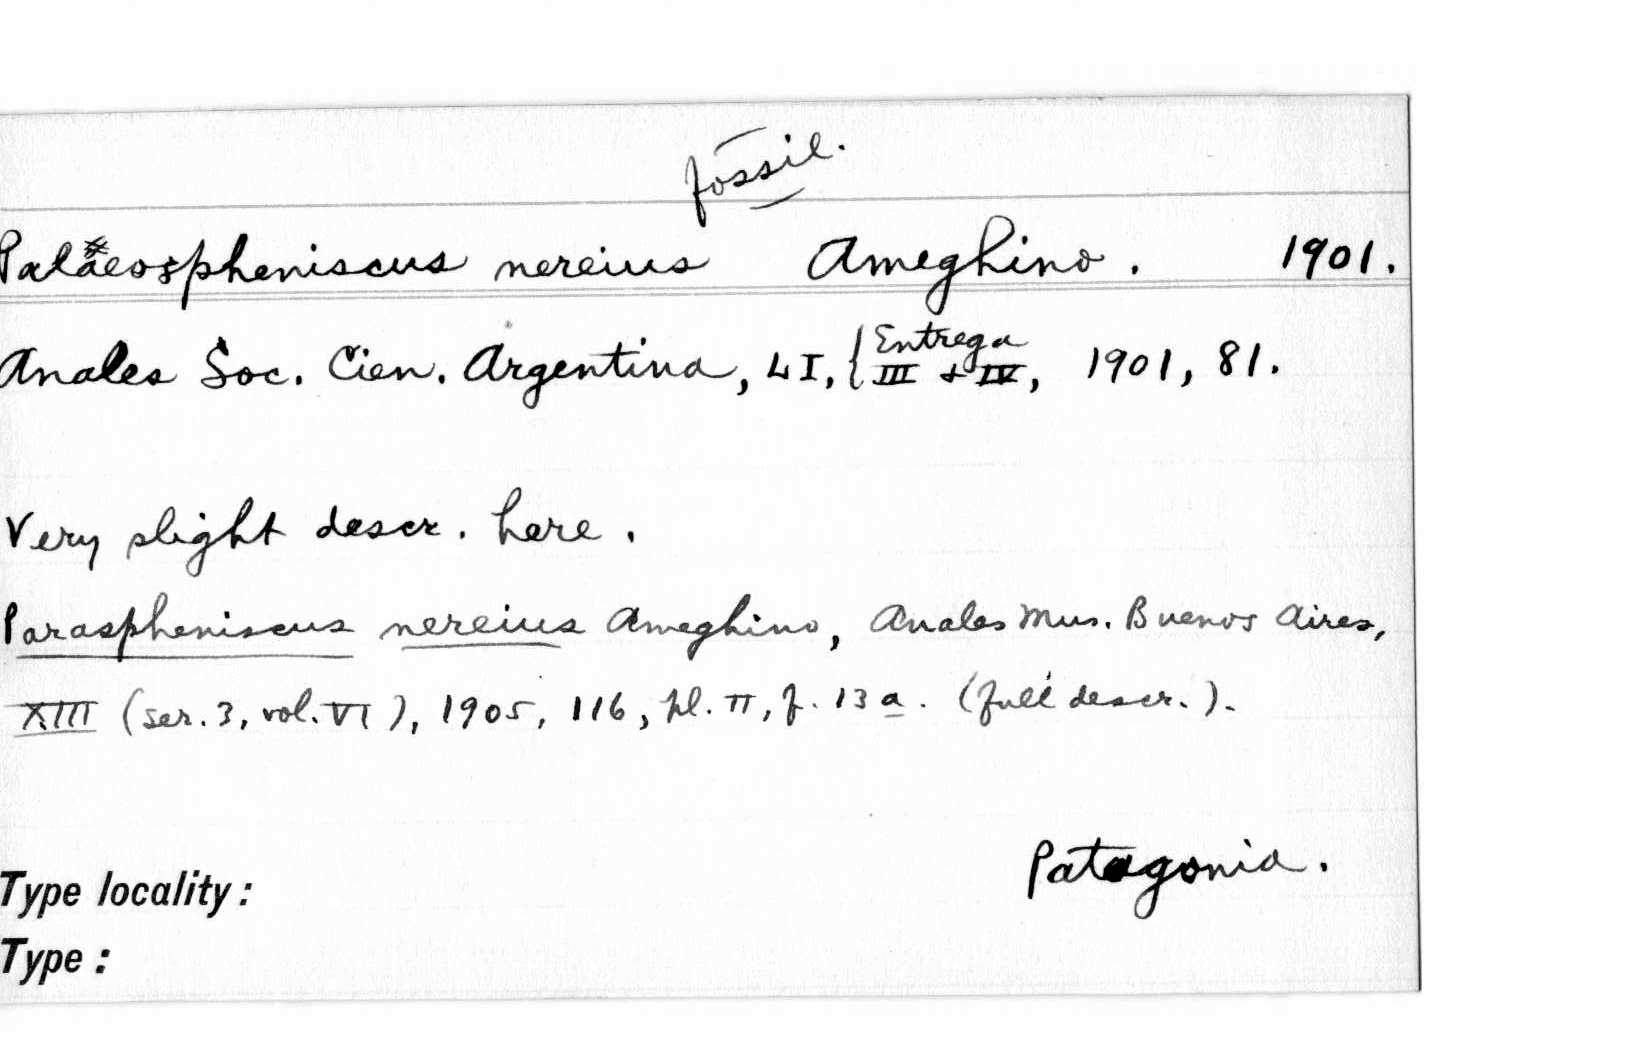 fossil.
Palaeospheniscus nereius Ameghino. 1901.
Anales Soc. Cien. Argentina, LI, { Entrega III & IV, 1901, 81.
Very slight descr. here.
Paraspheniscus nereius Ameghino, Anales Mus. Buenos Aires,
XIII (ser. 3, vol. VI), 1905, 116, pl. II, f. 13 a. (full descr.).
Patagonia.
Type locality:
Type: